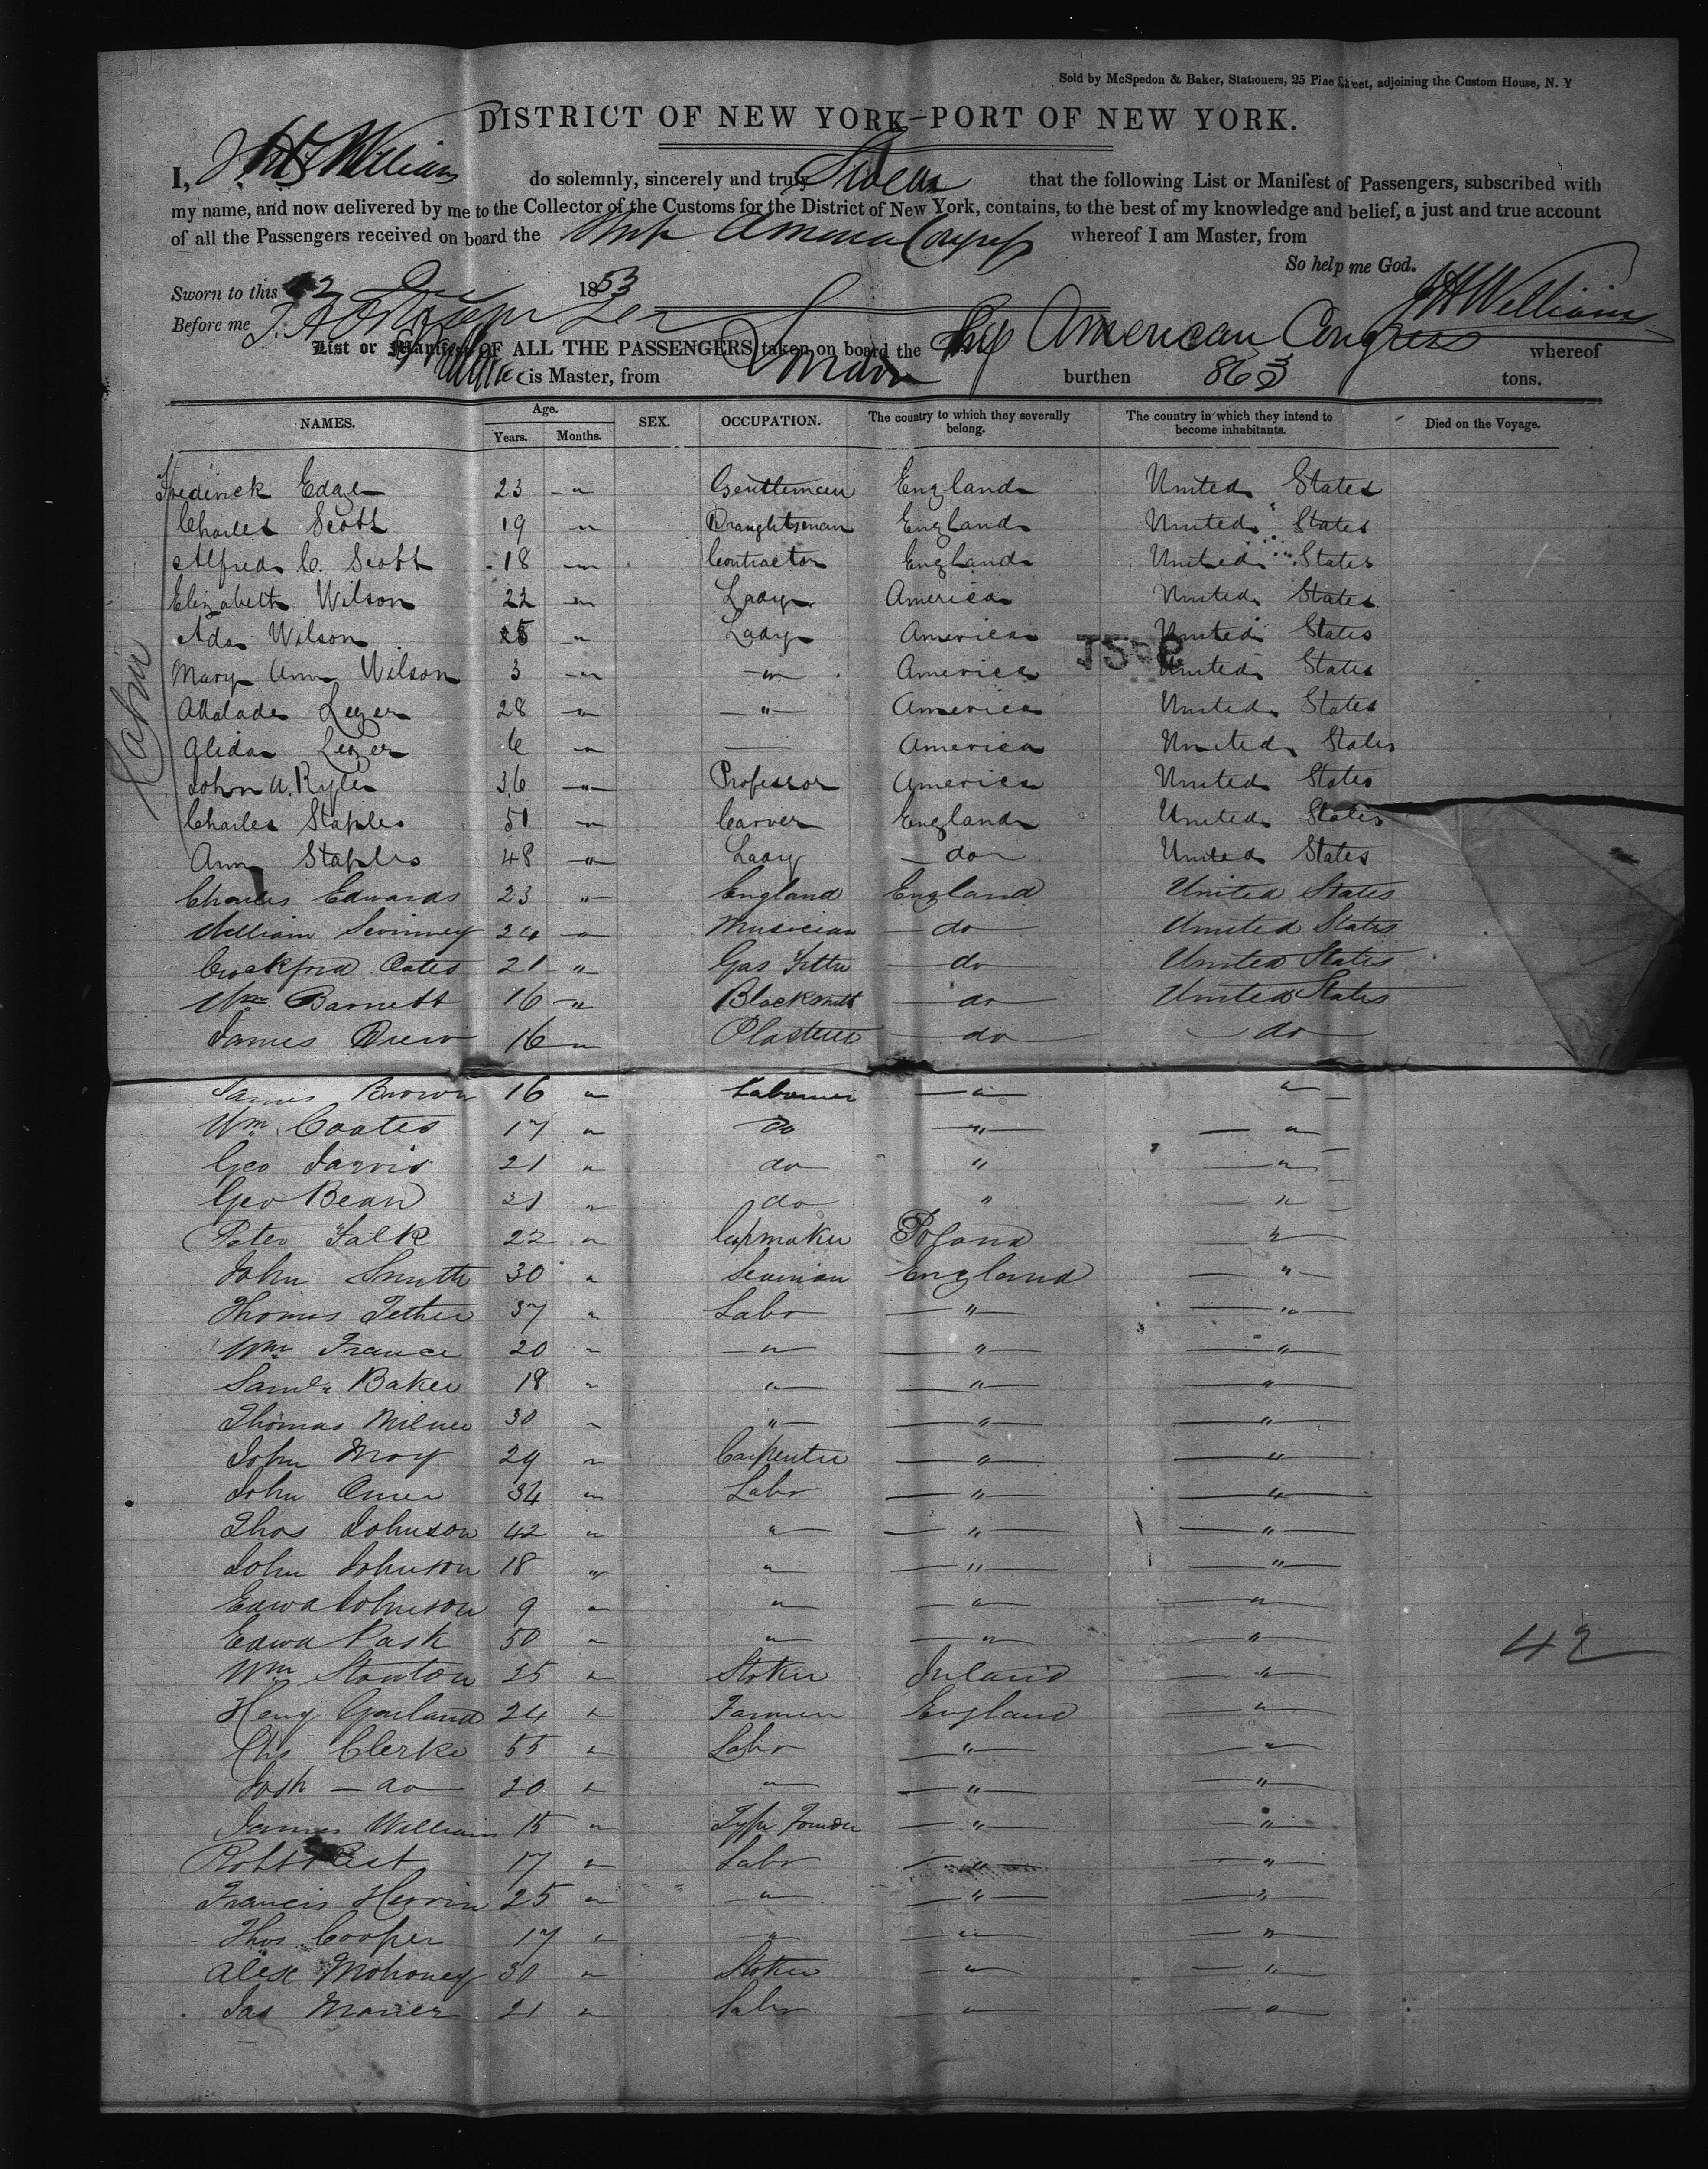 Sold by McSpedon & Baker, Stationers, 25 Pine Street, adjoining the Custom House, N. Y
DISTRICT OF NEW YORK—PORT OF NEW YORK.
I, J H Williams do solemnly, sincerely and truly Swear that the following List or Manifest of Passengers, subscribed with
my name, and now delivered by me to the Collector of the Customs for the District of New York, contains, to the best of my knowledge and belief, a just and true account
of all the Passengers received on board the Ship America Congress whereof I am Master, from
So help me God.
Sworn to this 22 1853
J H Williams
Before me
List or Manifest OF ALL THE PASSENGERS taken on board the Ship American Congress whereof
is Master, from London burthen 863 tons.
NAMES. Age. Years. Months. SEX. OCCUPATION. The country to which they severally belong. The country in which they intend to become inhabitants. Died on the Voyage.
Cabin
Frederick Edge 23 " Gentleman England United States
Charles Scott 19 " Draughtsman England United States
Alfred C. Scott 18 " Contractor England United States
Elizabeth Wilson 22 " Lady America United States
Ada Wilson 25 " Lady America United States
Mary Ann Wilson 3 " " America United States
Leger 28 " " America United States
Alida Leger 6 " — America United States
John A. Ryle 36 " Professor America United States
Charles Staples 51 " Carver England United States
Ann Staples 48 " Lady do United States
Charles Edwards 23 " England England United States
William Swinney 24 " Musician do United States
Crockford Oates 21 " Gas Fitter do United States
Wm Barnett 16 " Blacksmith do United States
James Drew 16 " Plasterer do do
James Brown 16 " Labourer " "
Wm Coates 17 " do " "
Geo Jarvis 21 " do " "
Geo Bean 21 " do " "
Peter Falk 22 " Capmaker Poland "
John Smith 30 " Seaman England "
Thomas Tether 37 " Labr " "
Wm France 20 " " " "
Saml Baker 18 " " " "
Thomas Milner 30 " " " "
John Moy 29 " Carpenter " "
John 34 " Labr " "
Thos Johnson 42 " " " "
John Johnson 18 " " " "
Edwd Johnson 9 " " " "
Edwd Pask 50 " " " "
42
Wm Stowton 25 " Stoker Ireland "
Heny Garland 24 " Farmer England "
Chs Clerke 55 " Labr " "
Josh — do 20 " " " "
James Williams 15 " Type Founder " "
Robt 17 " Labr " "
Francis 25 " " " "
Thos Cooper 17 " " " "
Alex Mohoney 30 " Stoker " "
Jas 21 " Labr " "